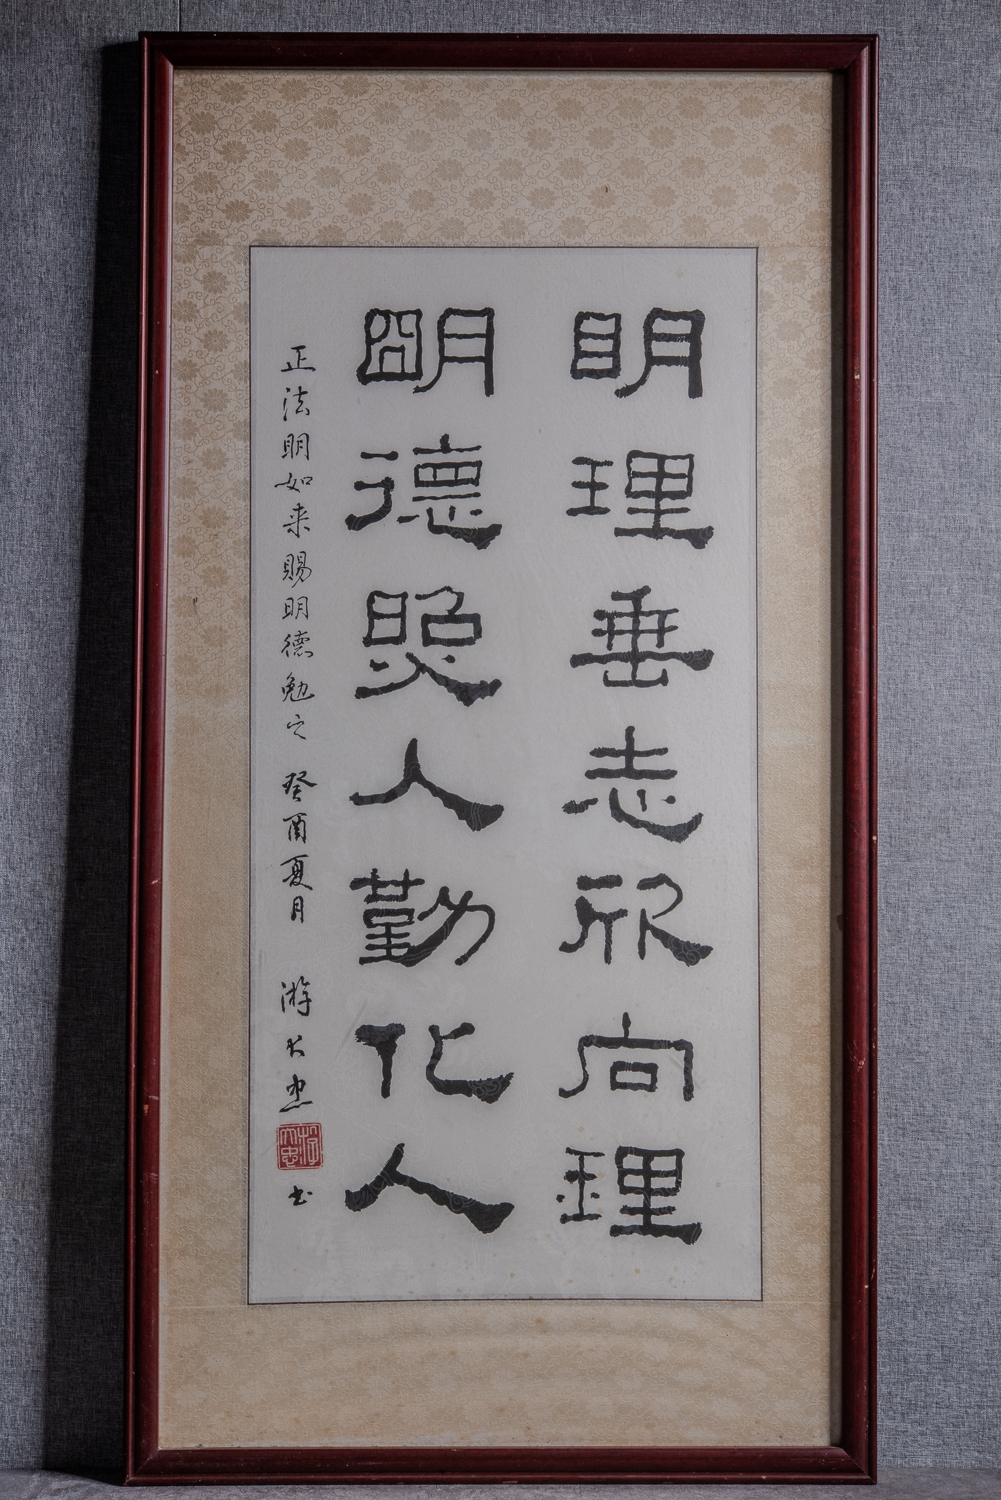 明理垂志欣向理
朙德照人勤化人
正法明如来賜明德勉之 癸酉夏月 游大忠 书